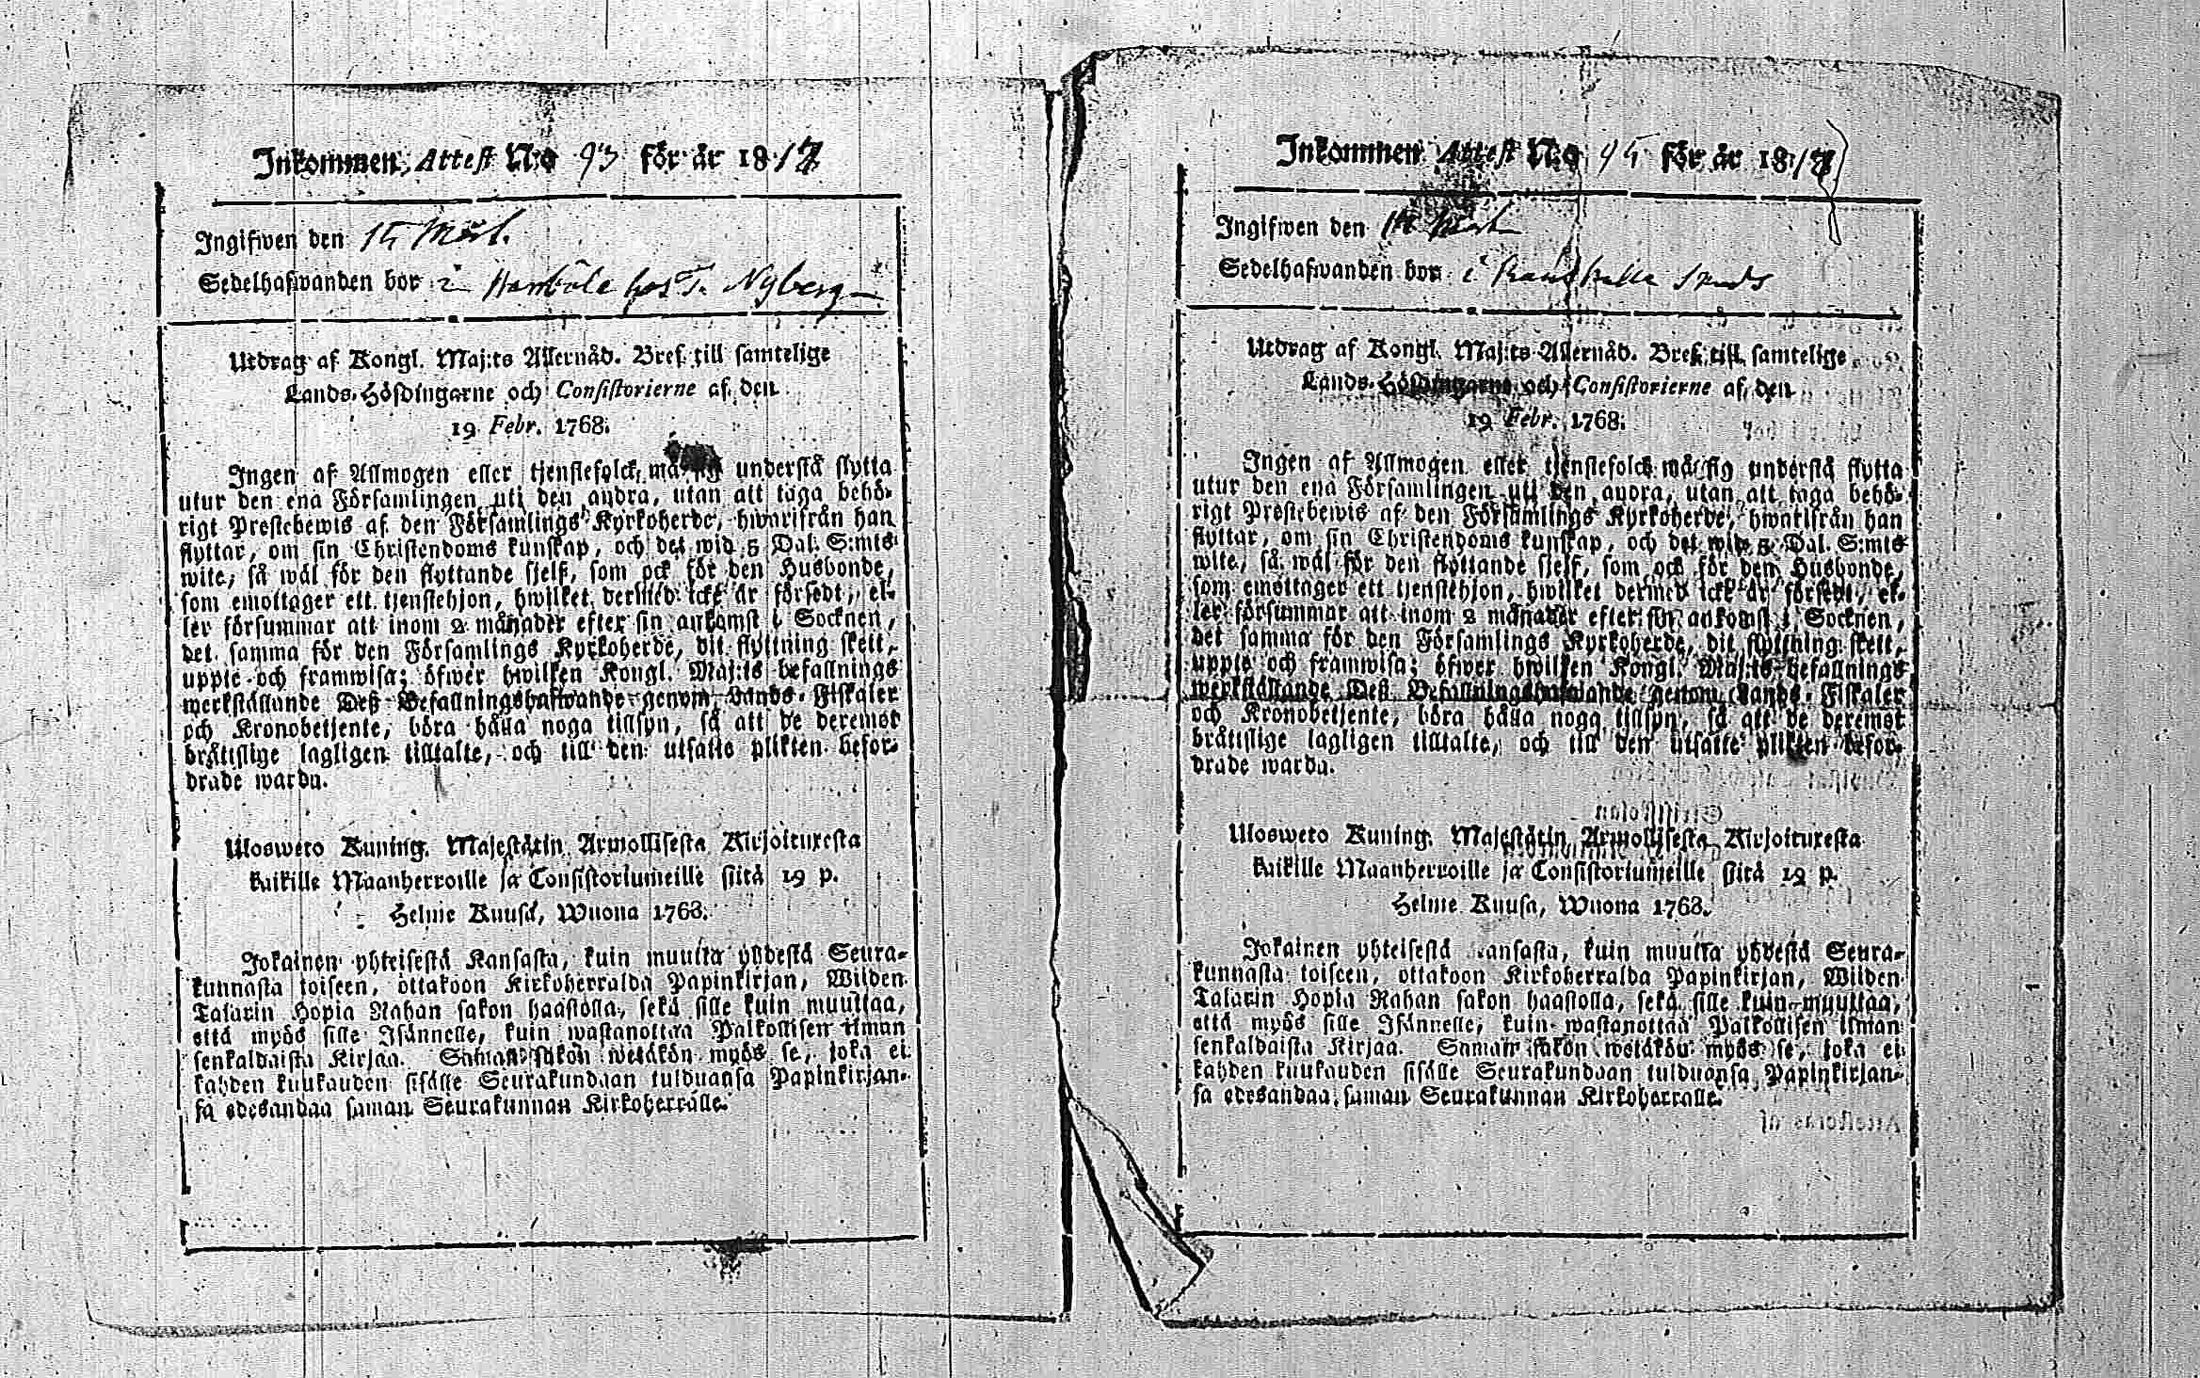 Inkommen, Attest N:o 93 för år 1817
Ingifwen den 15 Mart.
Sedelhafwanden bor i Hamböle hos T. Nyberg
Utdrag af Kongl. Maj:ts Allernåd. Bref till samtelige
Lands-Höfdingarne och Consistorierne af den
19 Febr. 1768.
Ingen af Allmogen eller tjenstefolck må sig understå flytta
utur den ena Församlingen uti den andra, utan att taga behö-
rigt Prestebewis af den Församlings Kyrkoherde, hwarifrån han
flyttar, om sin Christendoms kunskap, och det wid 5 Dal. S:mts
wite, så wäl för den flyttande sjelf, som ock för den Husbonde,
som emottager ett tjenstehjon, hwilket dermed icke är försedt, el-
ler försummar att inom 2 månader efter sin ankomst i Socknen,
det samma för den Församlings Kyrkoherde, dit flyttning skett,
uppte och framwisa; öfwer hwilken Kongl. Maj:ts befallnings
werkställande Deß Befallningshafwande genom Lands-Fiskaler
och Kronobetjente, böra hålla noga tillsyn, så att de deremot
bråttslige lagligen tilltalte, och till den utsatte plikten befor-
drade warda.
Ulosweto Kuning. Majestätin Armollisesta Kirjoituxesta
kaikille Maanherroille ja Consistoriumeille siitä 19 p.
Helme Kuusa, Wuona 1768.
Jokainen yhteisestä Kansasta, kuin muutta yhdestä Seura-
kunnasta toiseen, ottakoon Kirkoherralda Papinkirjan, Wiiden
Talarin Hopia Rahan sakon haastolla, sekä sille kuin muuttaa,
että myös sille Isännelle, kuin wastanottaa Palkollisen ilman
senkaldaista Kirjaa. Saman sakon wetäkön myös se, joka ei
kahden kuukauden sisälle Seurakundaan tulduansa Papinkirjan-
sa edesandaa saman Seurakunnan Kirkoherralle.
Inkommen Attest N:o 95 för år 1817
Ingifwen den
Sedelhafwanden bor i
Utdrag af Kongl. Maj:ts Allernåd. Bref till samtelige
Lands-Höfdingarne och Consistorierne af den
19 Febr. 1768.
Ingen af Allmogen eller tjenstefolck må sig understå flytta
utur den ena Församlingen uti den andra, utan att taga behö-
rigt Prestebewis af den Församlings Kyrkoherde, hwarifrån han
flyttar, om sin Christendoms kunskap, och det wid 5 Dal. S:mts
wite, så wäl för den flyttande sjelf, som ock för den Husbonde,
som emottager ett tjenstehjon, hwilket dermed icke är försedt, el-
ler försummar att inom 2 månader efter sin ankomst i Socknen,
det samma för den Församlings Kyrkoherde, dit flyttning skett,
uppte och framwisa; öfwer hwilken Kongl. Maj:ts befallnings
werkställande Deß Befallningshafwande genom Lands-Fiskaler
och Kronobetjente, böra hålla noga tillsyn, så att de deremot
bråttslige lagligen tilltalte, och till den utsatte plikten befor-
drade warda.
Ulosweto Kuning. Majestätin Armollisesta Kirjoituxesta
kaikille Maanherroille ja Consistoriumeille siitä 19 p.
Helme Kuusa, Wuona 1768.
Jokainen yhteisestä Kansasta, kuin muutta yhdestä Seura-
kunnasta toiseen, ottakoon Kirkoherralda Papinkirjan, Wiiden
Talarin Hopia Rahan sakon haastolla, sekä sille kuin muuttaa,
että myös sille Isännelle, kuin wastanottaa Palkollisen ilman
senkaldaista Kirjaa. Saman sakon wetäkön myös se, joka ei
kahden kuukauden sisälle Seurakundaan tulduansa Papinkirjan-
sa edesandaa saman Seurakunnan Kirkoherralle.